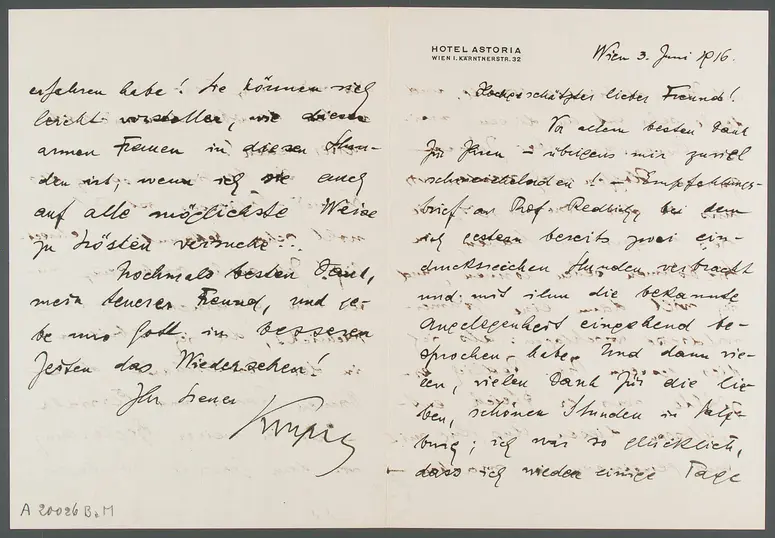 HOTEL ASTORIA
WIEN I. KÄRNTNERSTR. 32
Wien 3. Juni 1916.
Hochgeschätzter lieber Freund!
Vor allem besten Dank
für Ihren – übrigens mir zuviel
schmeichelnden! – Empfehlungs-
brief an Prof. Redlich, bei dem
ich gestern bereits zwei ein-
drucksreichen Stunden verbracht
und mit ihm die bekannte
Angelegenheit eingehend be-
sprochen habe. Und dann vie-
len, vielen Dank für die lie-
ben, schönen Stunden in Salz-
burg; ich war so glücklich,
dass ich wieder einige Tage
erfahren habe! Sie können sich
leicht vorstellen, wie diesen
armen Frauen in diesen Stun-
den ist, wenn ich sie auch
auf alle möglichste Weise
zu trösten versuche...
Nochmals besten Dank,
mein teuerer Freund, und ge-
be uns Gott in besseren
Zeiten das Wiedersehen!
Ihr treuer
A 20026 B.M